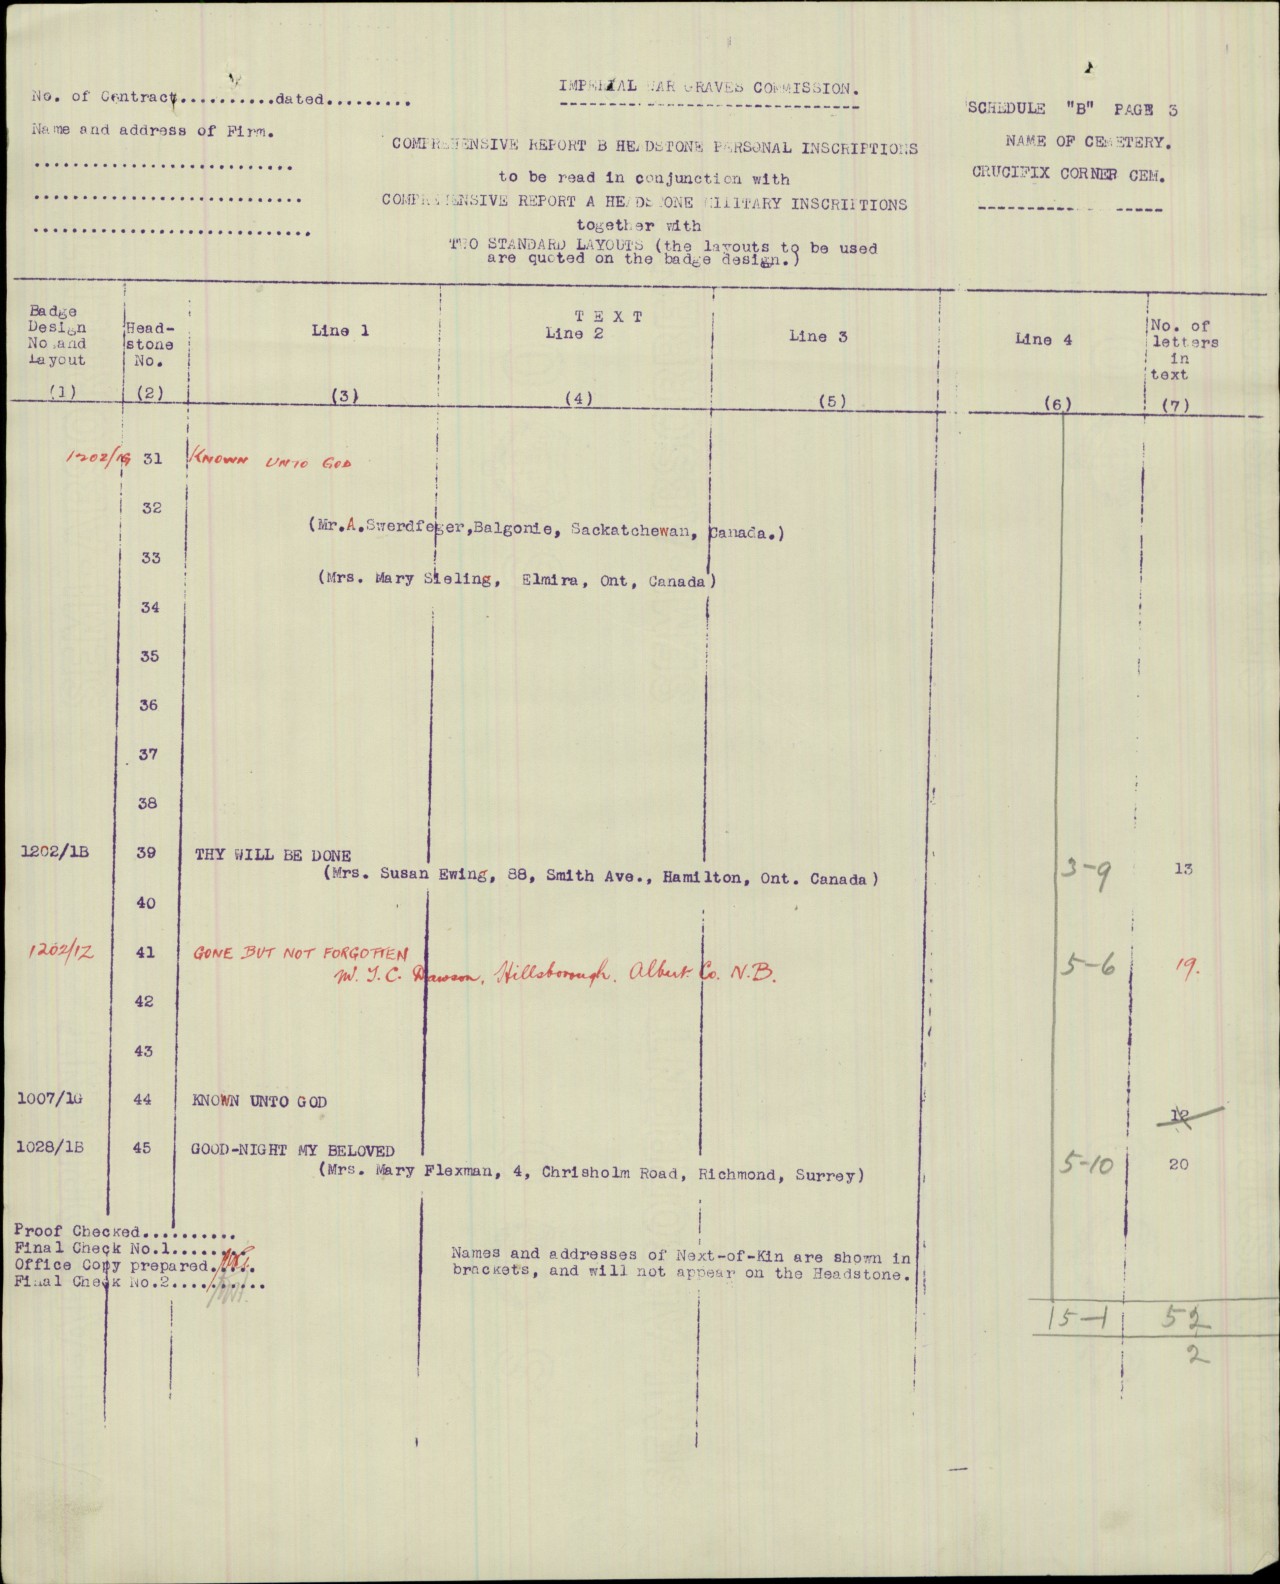 No. of Contract..........dated.........
Name and address of Firm.
IMPERIAL WAR GRAVES COMMISSION.
COMPREHENSIVE REPORT B HEADSTONE PERSONAL INSCRIPTIONS
to be read in conjunction with
COMPREHENSIVE REPORT A HEADSTONE MILITARY INSCRIPTIONS
together with
TWO STANDARD LAYOUTS (the layouts to be used
are quoted on the badge design.)
SCHEDULE "B" PAGE 3
NAME OF CEMETERY.
CRUCIFIX CORNER CEM.
Badge Design No.and Layout
(1)
Head-stone No.
(2)
TEXT
Line 1
(3)
Line 2
(4)
Line 3
(5)
Line 4
(6)
No. of letters in text
(7)
1202/1G 31 KNOWN UNTO GOD
32
(Mr.A.Swerdfeger,Balgonie, Sackatchewan, Canada.)
33
(Mrs. Mary Sieling, Elmira, Ont, Canada)
34
35
36
37
38
1202/1B 39 THY WILL BE DONE
(Mrs. Susan Ewing, 88, Smith Ave., Hamilton, Ont. Canada) 3-9 13
40
1202/1Z 41 GONE BUT NOT FORGOTTEN
M. T.C. Dawson, Hillsborough. Albert Co. N.B. 5-6 19.
42
43
1007/1G 44 KNOWN UNTO GOD
12
1028/1B 45 GOOD-NIGHT MY BELOVED
(Mrs. Mary Flexman, 4, Chrisholm Road, Richmond, Surrey) 5-10 20
Proof Checked..........
Final Check No.1........
Office Copy prepared.....
Final Check No.2..........
Names and addresses of Next-of-Kin are shown in
brackets, and will not appear on the Headstone.
15-1 52
2